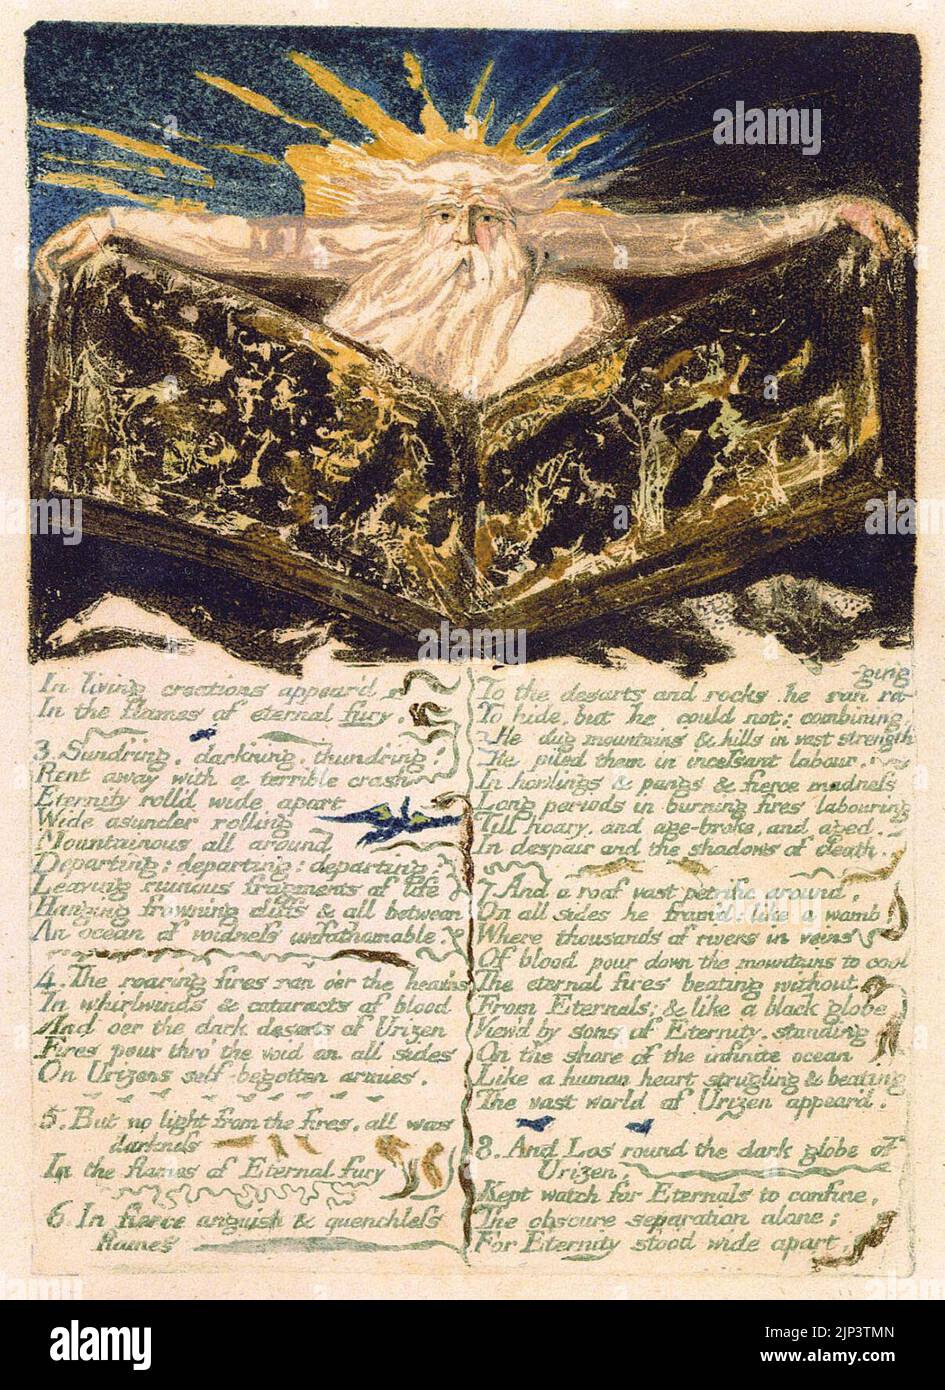 In living creations appear'd
In the flames of eternal fury.
3. Sundring, darkning, thundring;
Rent away with a terrible crash
Eternity roll'd wide apart
Wide asunder rolling
Mountainous all around
Departing; departing; departing:
Leaving ruinous fragments of life
Hanging frowning cliffs & all between
An ocean of voidness unfathomable.
4. The roaring fires ran o'er the heav'ns
In whirlwinds & cataracts of blood
And o'er the dark desarts of Urizen
Fires pour thro' the void on all sides
On Urizens self-begotten armies.
5. But no light from the fires, all was
darkness
In the flames of Eternal fury
6. In fierce anguish & quenchless
flames
-ging
To the desarts and rocks he ran ra-
To hide, but he could not; combining,
He dug mountains & hills in vast strength
He piled them in incessant labour,
In howlings & pangs & fierce madness
Long periods in burning fires labouring
Till hoary, and age-broke, and aged,
In despair and the shadows of death.
7. And a roof vast petrific around,
On all sides he fram'd: like a womb;
Where thousands of rivers in veins
Of blood pour down the mountains to cool
The eternal fires beating without
From Eternals; & like a black globe
View'd by sons of Eternity, standing
On the shore of the infinite ocean
Like a human heart strugling & beating
The vast world of Urizen appear'd.
8. And Los round the dark globe of
Urizen,
Kept watch for Eternals to confine,
The obscure separation alone;
For Eternity stood wide apart,
alamy
Image ID: 2JP3TMN
www.alamy.com